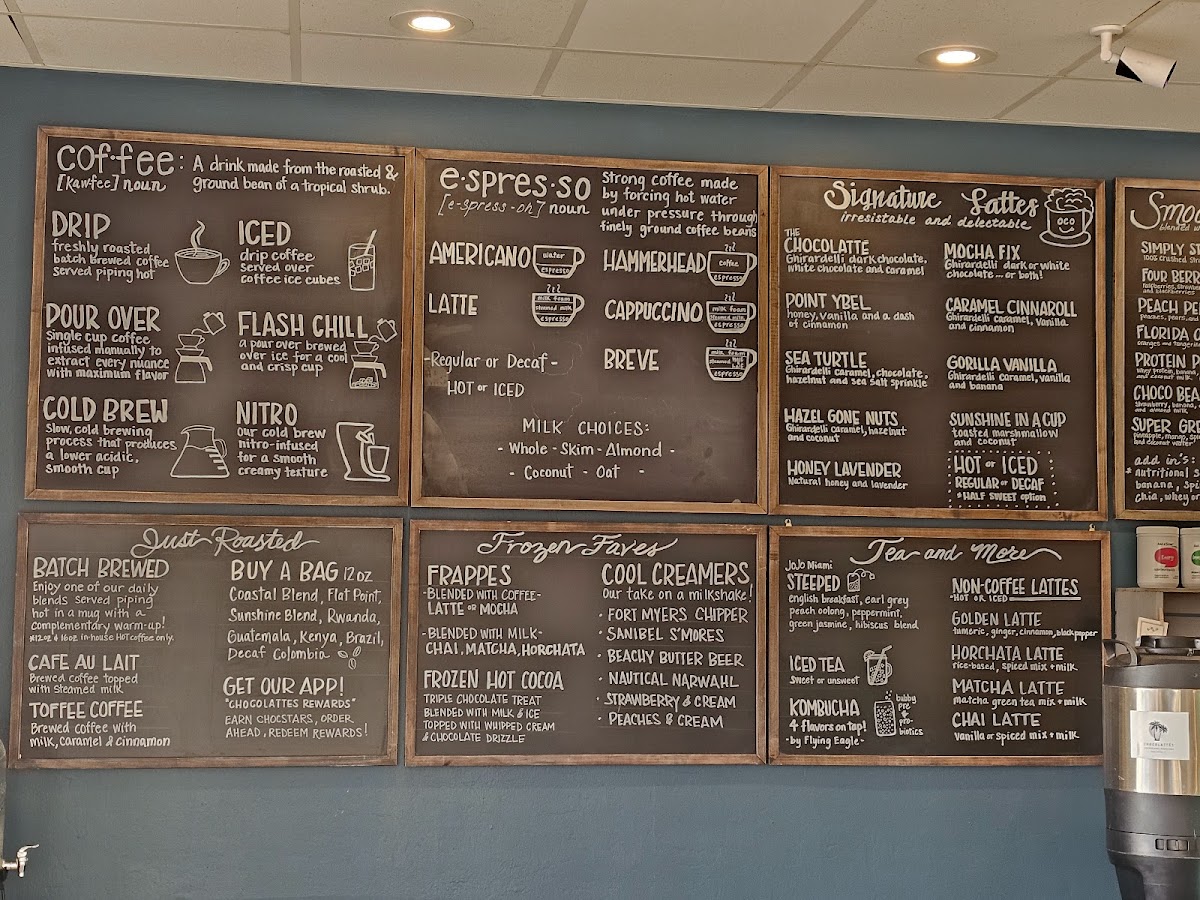 cof·fee:
[kawfee] noun
A drink made from the roasted &
ground bean of a tropical shrub.
DRIP
freshly roasted
batch brewed coffee
served piping hot
ICED
drip coffee
served over
coffee ice cubes
POUR OVER
Single cup coffee
infused manually to
extract every nuance
with maximum flavor
FLASH CHILL
a pour over brewed
over ice for a cool
and crisp cup
COLD BREW
Slow, cold brewing
process that produces
a lower acidic,
smooth cup
NITRO
our cold brew
nitro-infused
for a smooth
creamy texture
e·spres·so
[e-spress-oh] noun
Strong coffee made
by forcing hot water
under pressure through
finely ground coffee beans
AMERICANO
water
espresso
HAMMERHEAD
coffee
espresso
LATTE
milk foam
steamed milk
espresso
CAPPUCCINO
milk foam
steamed milk
espresso
-Regular or Decaf-
HOT or ICED
BREVE
milk foam
espresso
MILK CHOICES:
- Whole - Skim - Almond -
- Coconut - Oat -
Signature Lattes
irresistable and delectable
OCO
THE
CHOCOLATTE
Ghirardelli dark chocolate,
white chocolate and caramel
POINT YBEL
honey, vanilla and a dash
of cinnamon
SEA TURTLE
Ghirardelli caramel, chocolate,
hazelnut and sea salt sprinkle
HAZEL GONE NUTS
Ghirardelli caramel, hazelnut
and coconut
HONEY LAVENDER
Natural honey and lavender
MOCHA FIX
Ghirardelli dark or white
chocolate ... or both!
CARAMEL CINNAROLL
Ghirardelli caramel, vanilla
and cinnamon
GORILLA VANILLA
Ghirardelli caramel, vanilla
and banana
SUNSHINE IN A CUP
toasted marshmallow
and coconut
HOT or ICED
REGULAR or DECAF
*HALF SWEET option
Smo
blended w
SIMPLY S
100% crushed
FOUR BER
raspberries,
and blackberries
PEACH PE
peaches, pears, and
FLORIDA
oranges and
PROTEIN P
whey protein, banana,
and coconut milk
CHOCO BEA
strawberry, banana,
and almond milk
SUPER GRE
pineapple, mango,
and coconut water
add in's:
* nutritional s
banana, spi
chia, whey or
Just Roasted
BATCH BREWED
Enjoy one of our daily
blends served piping
hot in a mug with a
complementary warm-up!
*12oz & 16oz in-house HOT coffee only.
CAFE AU LAIT
Brewed coffee topped
with steamed milk
TOFFEE COFFEE
Brewed coffee with
milk, caramel & cinnamon
BUY A BAG 12 oz
Coastal Blend, Flat Point,
Sunshine Blend, Rwanda,
Guatemala, Kenya, Brazil,
Decaf Colombia
GET OUR APP!
"CHOCOLATTES REWARDS"
EARN CHOCSTARS, ORDER
AHEAD, REDEEM REWARDS!
Frozen Faves
FRAPPES
-BLENDED WITH COFFEE-
LATTE or MOCHA
-BLENDED WITH MILK-
CHAI, MATCHA, HORCHATA
FROZEN HOT COCOA
TRIPLE CHOCOLATE TREAT
BLENDED WITH MILK & ICE
TOPPED WITH WHIPPED CREAM
& CHOCOLATE DRIZZLE
COOL CREAMERS
Our take on a milkshake!
· FORT MYERS CHIPPER
· SANIBEL S'MORES
· BEACHY BUTTER BEER
· NAUTICAL NARWAHL
· STRAWBERRY & CREAM
· PEACHES & CREAM
Tea and More
JoJo Miami
STEEPED
english breakfast, earl grey
peach oolong, peppermint,
green jasmine, hibiscus blend
ICED TEA
Sweet or unsweet
KOMBUCHA
4 flavors on tap!
-by Flying Eagle-
bubbly
pre
&
pro-
biotics
NON-COFFEE LATTES
HOT or ICED
GOLDEN LATTE
tumeric, ginger, cinnamon, black pepper
HORCHATA LATTE
rice-based, spiced mix + milk
MATCHA LATTE
matcha green tea mix + milk
CHAI LATTE
vanilla or spiced mix + milk
CHOCOLATTES